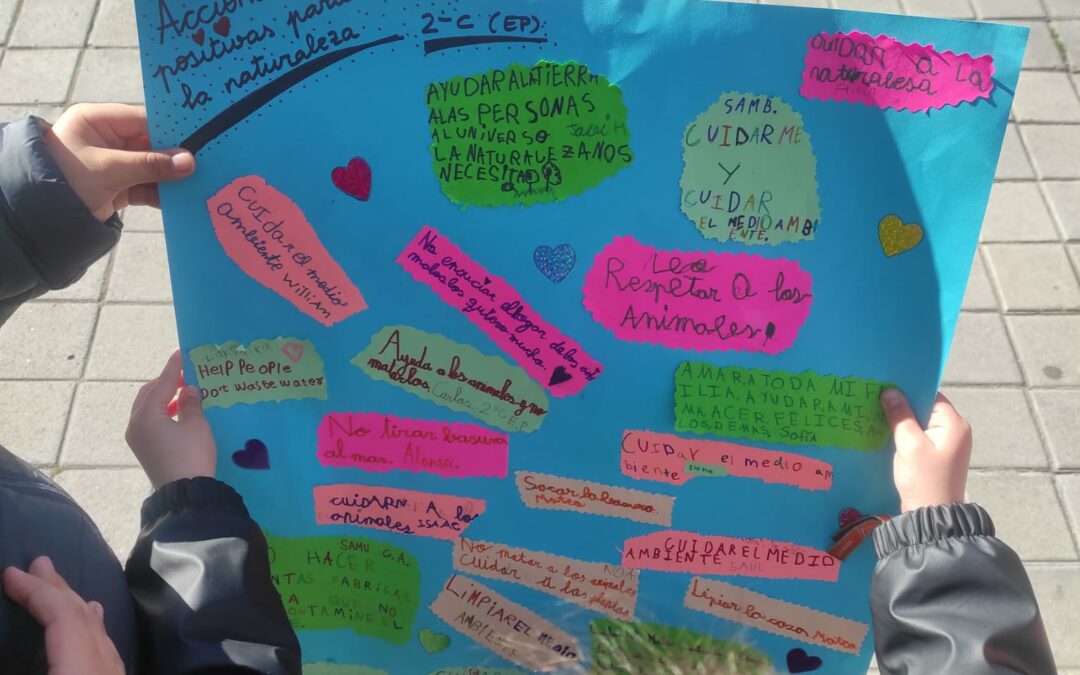 Acciones
positivas para
la naturaleza
2º C (EP)
CUIDAR A LA
naturalesa
AYUDAR ALATIERRA
ALAS PERSONAS
AL UNIVERSO
LA NATURALEZANOS
NECESITA
SAMB.
CUIDARME
Y
CUIDAR
EL MEDIOAMBI
ENTE.
CUIDAR el medio
ambiente William
No ensuciar el hogar de los ani
malo los quiero mucho.
Leo
Respetar A los
Animales!
HelP PeoPle
Dot waste water
Ayuda a los animales y no
matarlos. Carlos 2ºC E.P.
AMARATODA MI FA
ILIA. AYUDAR.AMI.
MA.ACER FELICES.A
LOS.DEMAS. Sofía
No tirar basura
al mar. Alonso.
CUIDAR el medio am
biente
CUIDARN A los
animales ISAAC
Sacar la basura
Mateo
CUIDAR EL MEDIO
AMBIENTE SAUL
SAMU G.A.
HACER
NTAS FABRICAS
A QUE NO
ONTAMINE EL
No matar a los animales
Cuidar a las plantas
NOA
LIMPIAR EL MEDIO
AMBIEN
Lipiar la casa Mateo